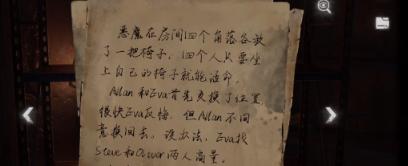 恶魔在房间四个角落各放
了一把椅子，四个人只要坐
上自己的椅子就能活命。
Allan和Eva首先交换了位置，
很快Eva反悔，但Allan不同
意换回去。没办法，Eva找
Steve和Oliver两人商量，